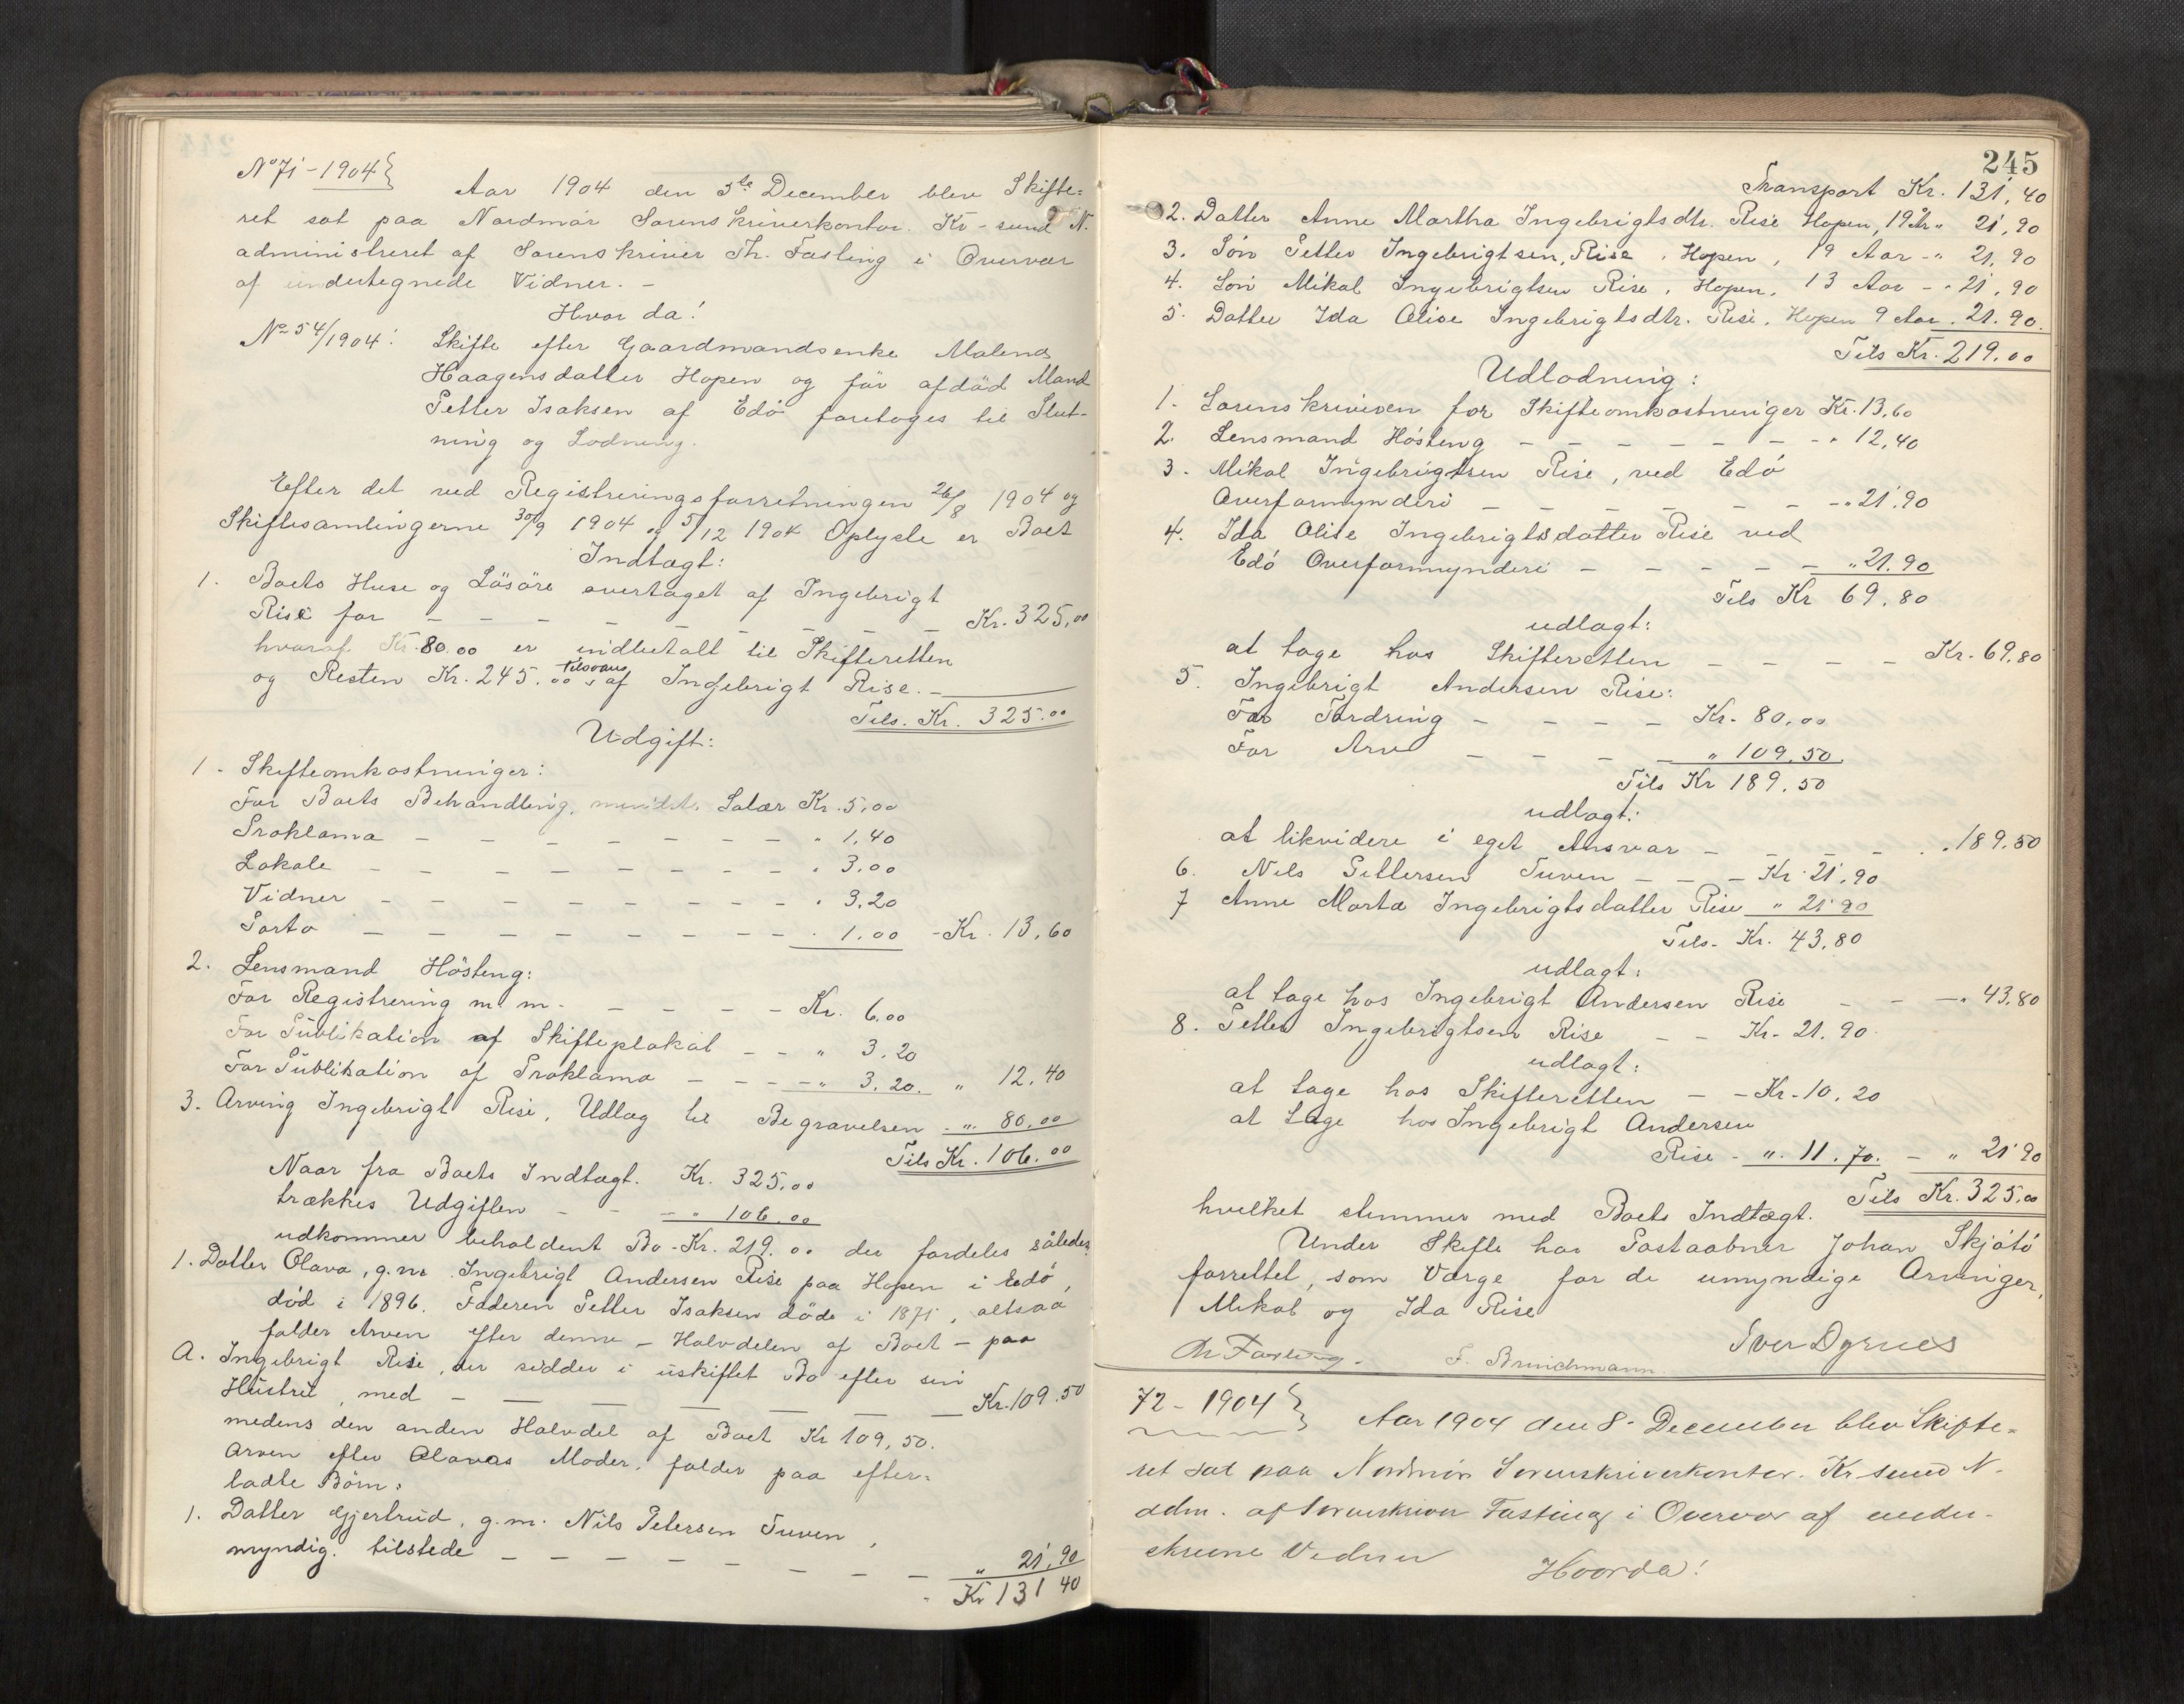 No 71 - 1904}
Aar 1904 den 5te December blev Skifte-
ret sat paa Nordmör Sorenskriverkontor. Kr-sund N.
administreret af Sorenskriver Th. Fasting i Overvær
af undertegnede Vidner. -
Hvor da!
No 54/1904: Skifte efter Gaardmandsenke Malena
Haagensdatter Hopen og för afdöd Mand
Petter Isaksen af Edö foretoges til Slut-
ning og Lodning.
Efter det ved Registreringsforretningen 26/8 1904 og
Skiftesamlingerne 30/9 1904 og 5/12 1904 Oplyste er Boets
Indtægt:
1. Boets Huse og Lösöre overtaget af Ingebrigt
Rise for - - - - - - - - Kr. 325,00
hvoraf Kr. 80.00 er indbetalt til Skifteretten
og Resten Kr. 245.00 tilsvares af Ingebrigt Rise. -
Tils. Kr. 325.00
Udgift:
1 - Skifteomkostninger:
For Boets Behandling, mindste Salær Kr. 5,00
Proklama - - - - - - - " 1,40
Lokale - - - - - - - - " 3,00
Vidner - - - - - - - - " 3.20
Porto - - - - - - - - " 1.00 - Kr. 13,60
2. Lensmand Hösteng:
For Registrering m.m. - - - - Kr. 6.00
For Publikation af Skifteplakat - - " 3.20
For Publikation af Proklama - - - - " 3.20. " 12.40
3. Arving Ingebrigt Rise, Udlæg til Begravelsen - " 80,00
Tils Kr. 106.00
Naar fra Boets Indtægt. Kr. 325,00
trækkes Udgiften - - - " 106.00
udkommer beholdent Bo - Kr. 219.00 der fordeles således
1. Datter Olava, g.m. Ingebrigt Andersen Rise paa Hopen i Edö,
död i 1896. Faderen Petter Isaksen döde i 1871, altsaa
falder Arven efter denne - Halvdelen af Boet - paa
A. Ingebrigt Rise, der sidder i uskiftet Bo efter sin
Hustru, med - - - - - - Kr. 109.50
medens den anden Halvdel af Boet Kr 109,50.
Arven efter Olavas Moder, falder paa efter-
ladte Börn:
1. Datter Gjertrud, g.m. Nils Petersen Tuven,
myndig. tilstede - - - - - - - - " 21,90
Kr 131 40
245
Transport Kr. 131,40
2. Datter Anne Martha Ingebrigtsdtr. Rise Hopen, 19 År " 21,90
3. Sön Petter Ingebrigtsen, Rise, Hopen, 19 Aar - " 21,90
4. Sön Mikal Ingebrigtsen Rise, Hopen, 13 Aar - " 21,90
5. Datter Ida Olise Ingebrigtsdtr. Rise, Hopen 9 Aar " 21.90.
Tils Kr. 219.00
Udlodning:
1. Sorenskriveren for Skifteomkostninger Kr. 13,60
2. Lensmand Hösteng - - - - - - - " 12,40
3. Mikal Ingebrigtsen Rise, ved Edö
Overformynderi - - - - - - - " 21,90
4. Ida Olise Ingebrigtsdatter Rise ved
Edö Overformynderi - - - - - " 21.90
Tils Kr 69,80
udlagt:
at tage hos Skifteretten - - - - Kr. 69,80
5. Ingebrigt Andersen Rise:
For Fordring - - - - Kr. 80,00
For Arv - - - - " 109.50.
Tils Kr 189.50
udlagt:
at likvidere i eget Ansvar - - - - " 189.50
6. Nils Pettersen Tuven - - - Kr. 21,90
7 Anne Marta Ingebrigtsdatter Rise " 21 90
Tils. Kr. 43,80
udlagt:
at tage hos Ingebrigt Andersen Rise - - - " 43.80
8. Petter Ingebrigtsen Rise - - Kr. 21.90
udlagt:
at tage hos Skifteretten - - Kr. 10,20
at tage hos Ingebrigt Andersen
Rise - " 11.70. - " 21 90
Tils Kr. 325,00
hvilket stemmer med Boets Indtægt.
Under Skifte har Postaabner Johan Skjötö
forrettet, som Værge for de umyndige Arvinger,
Mikal og Ida Rise
Th Fasting. F. Brinchmann Iver Dyrnes
72 - 1904}
Aar 1904 den 8. December blev Skifte-
ret sat paa Nordmör Sorenskriverkontor. Kr sund N.
adm. af Sorenskriver Fasting i Overvær af under-
skrevne Vidner
Hvorda!